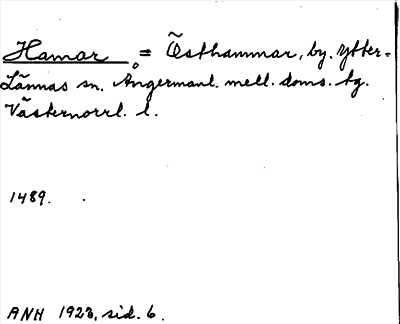 Hamar = Östhammar, by. Ytter-
Lännas sn. Ångermanl. mell. doms. tg.
Västernorrl. l.
1489.
ANH 1923, sid. 6.